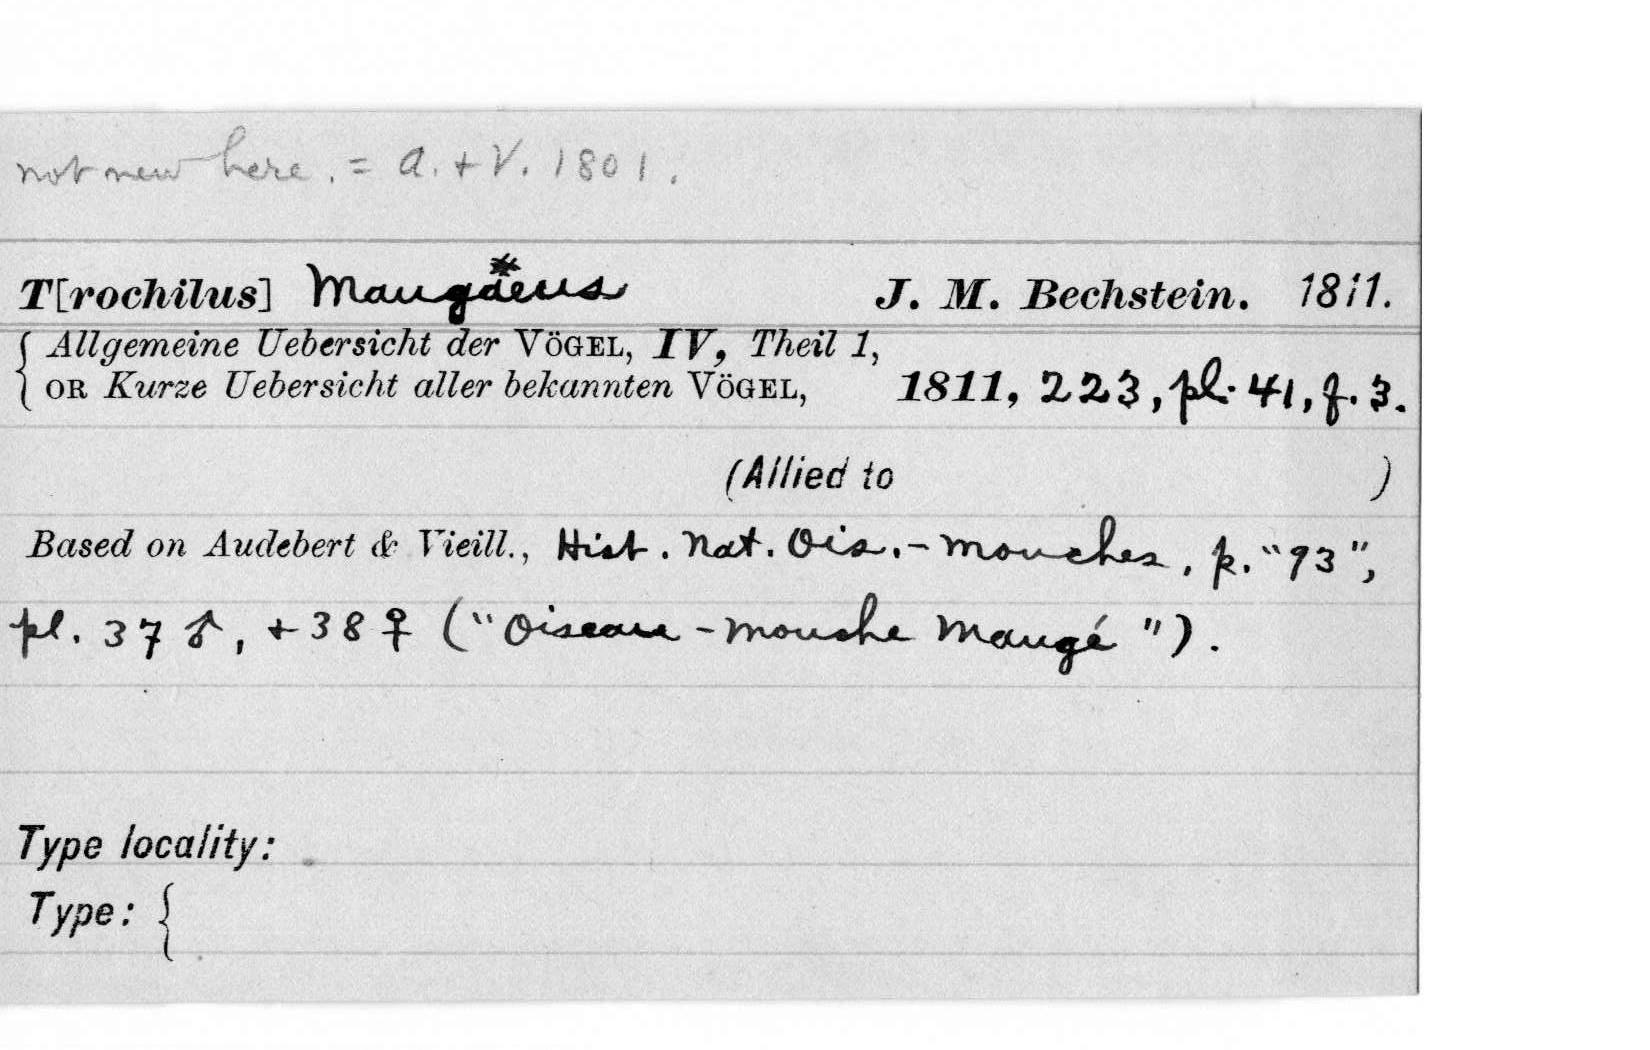 not new here. = A. + V. 1801.
T[rochilus] Maugaeus J. M. Bechstein. 1811.
{ Allgemeine Uebersicht der VÖGEL, IV, Theil 1,
{ OR Kurze Uebersicht aller bekannten VÖGEL, 1811, 223, pl. 41, f. 3.
(Allied to )
Based on Audebert & Vieill., Hist. Nat. Ois.-mouches, p. "93",
pl. 37 ♂, + 38 ♀ ("Oiseau-mouche Maugé").
Type locality:
Type: {